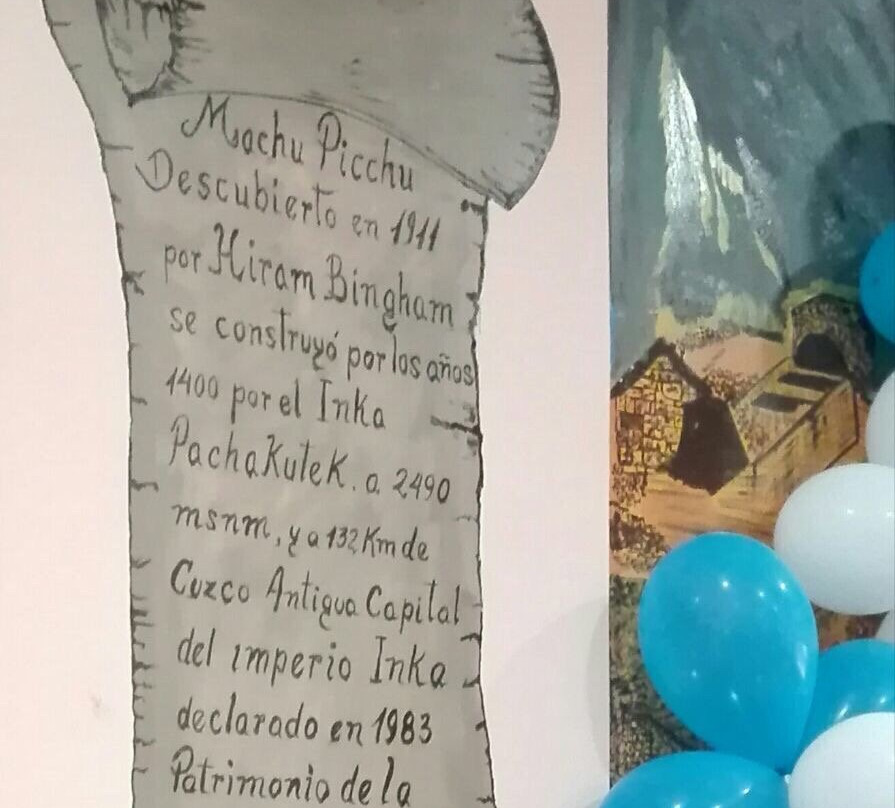 Machu Picchu
Descubierto en 1911
por Hiram Bingham
se construyó por los años
1400 por el Inka
PachaKuteK. a 2490
msnm, y a 132 Km de
Cuzco Antigua Capital
del imperio Inka
declarado en 1983
Patrimonio de la